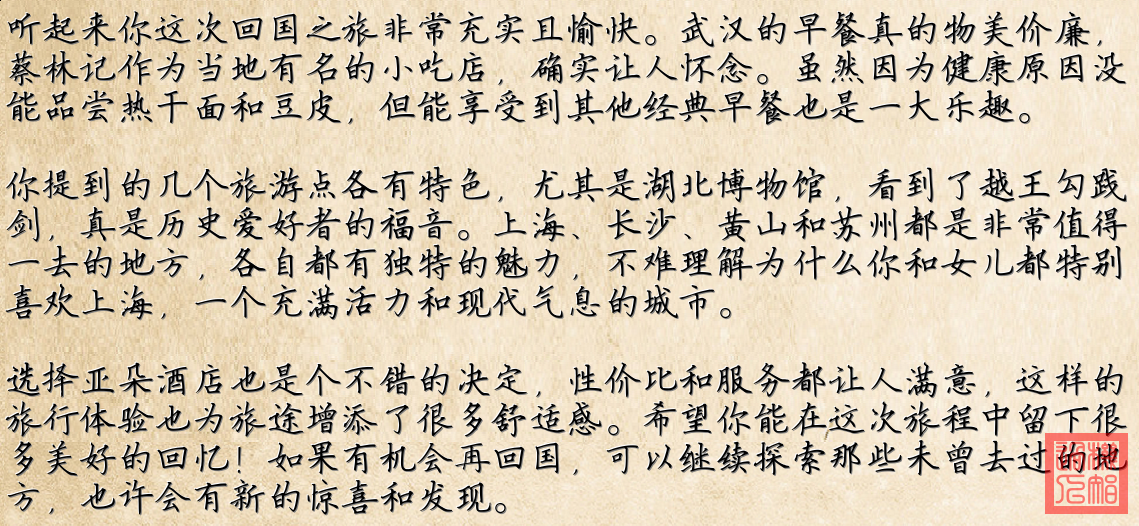 听起来你这次回国之旅非常充实且愉快。武汉的早餐真的物美价廉，
蔡林记作为当地有名的小吃店，确实让人怀念。虽然因为健康原因没
能品尝热干面和豆皮，但能享受到其他经典早餐也是一大乐趣。
你提到的几个旅游点各有特色，尤其是湖北博物馆，看到了越王勾践
剑，真是历史爱好者的福音。上海、长沙、黄山和苏州都是非常值得
一去的地方，各自都有独特的魅力，不难理解为什么你和女儿都特别
喜欢上海，一个充满活力和现代气息的城市。
选择亚朵酒店也是个不错的决定，性价比和服务都让人满意，这样的
旅行体验也为旅途增添了很多舒适感。希望你能在这次旅程中留下很
多美好的回忆！如果有机会再回国，可以继续探索那些未曾去过的地
方，也许会有新的惊喜和发现。